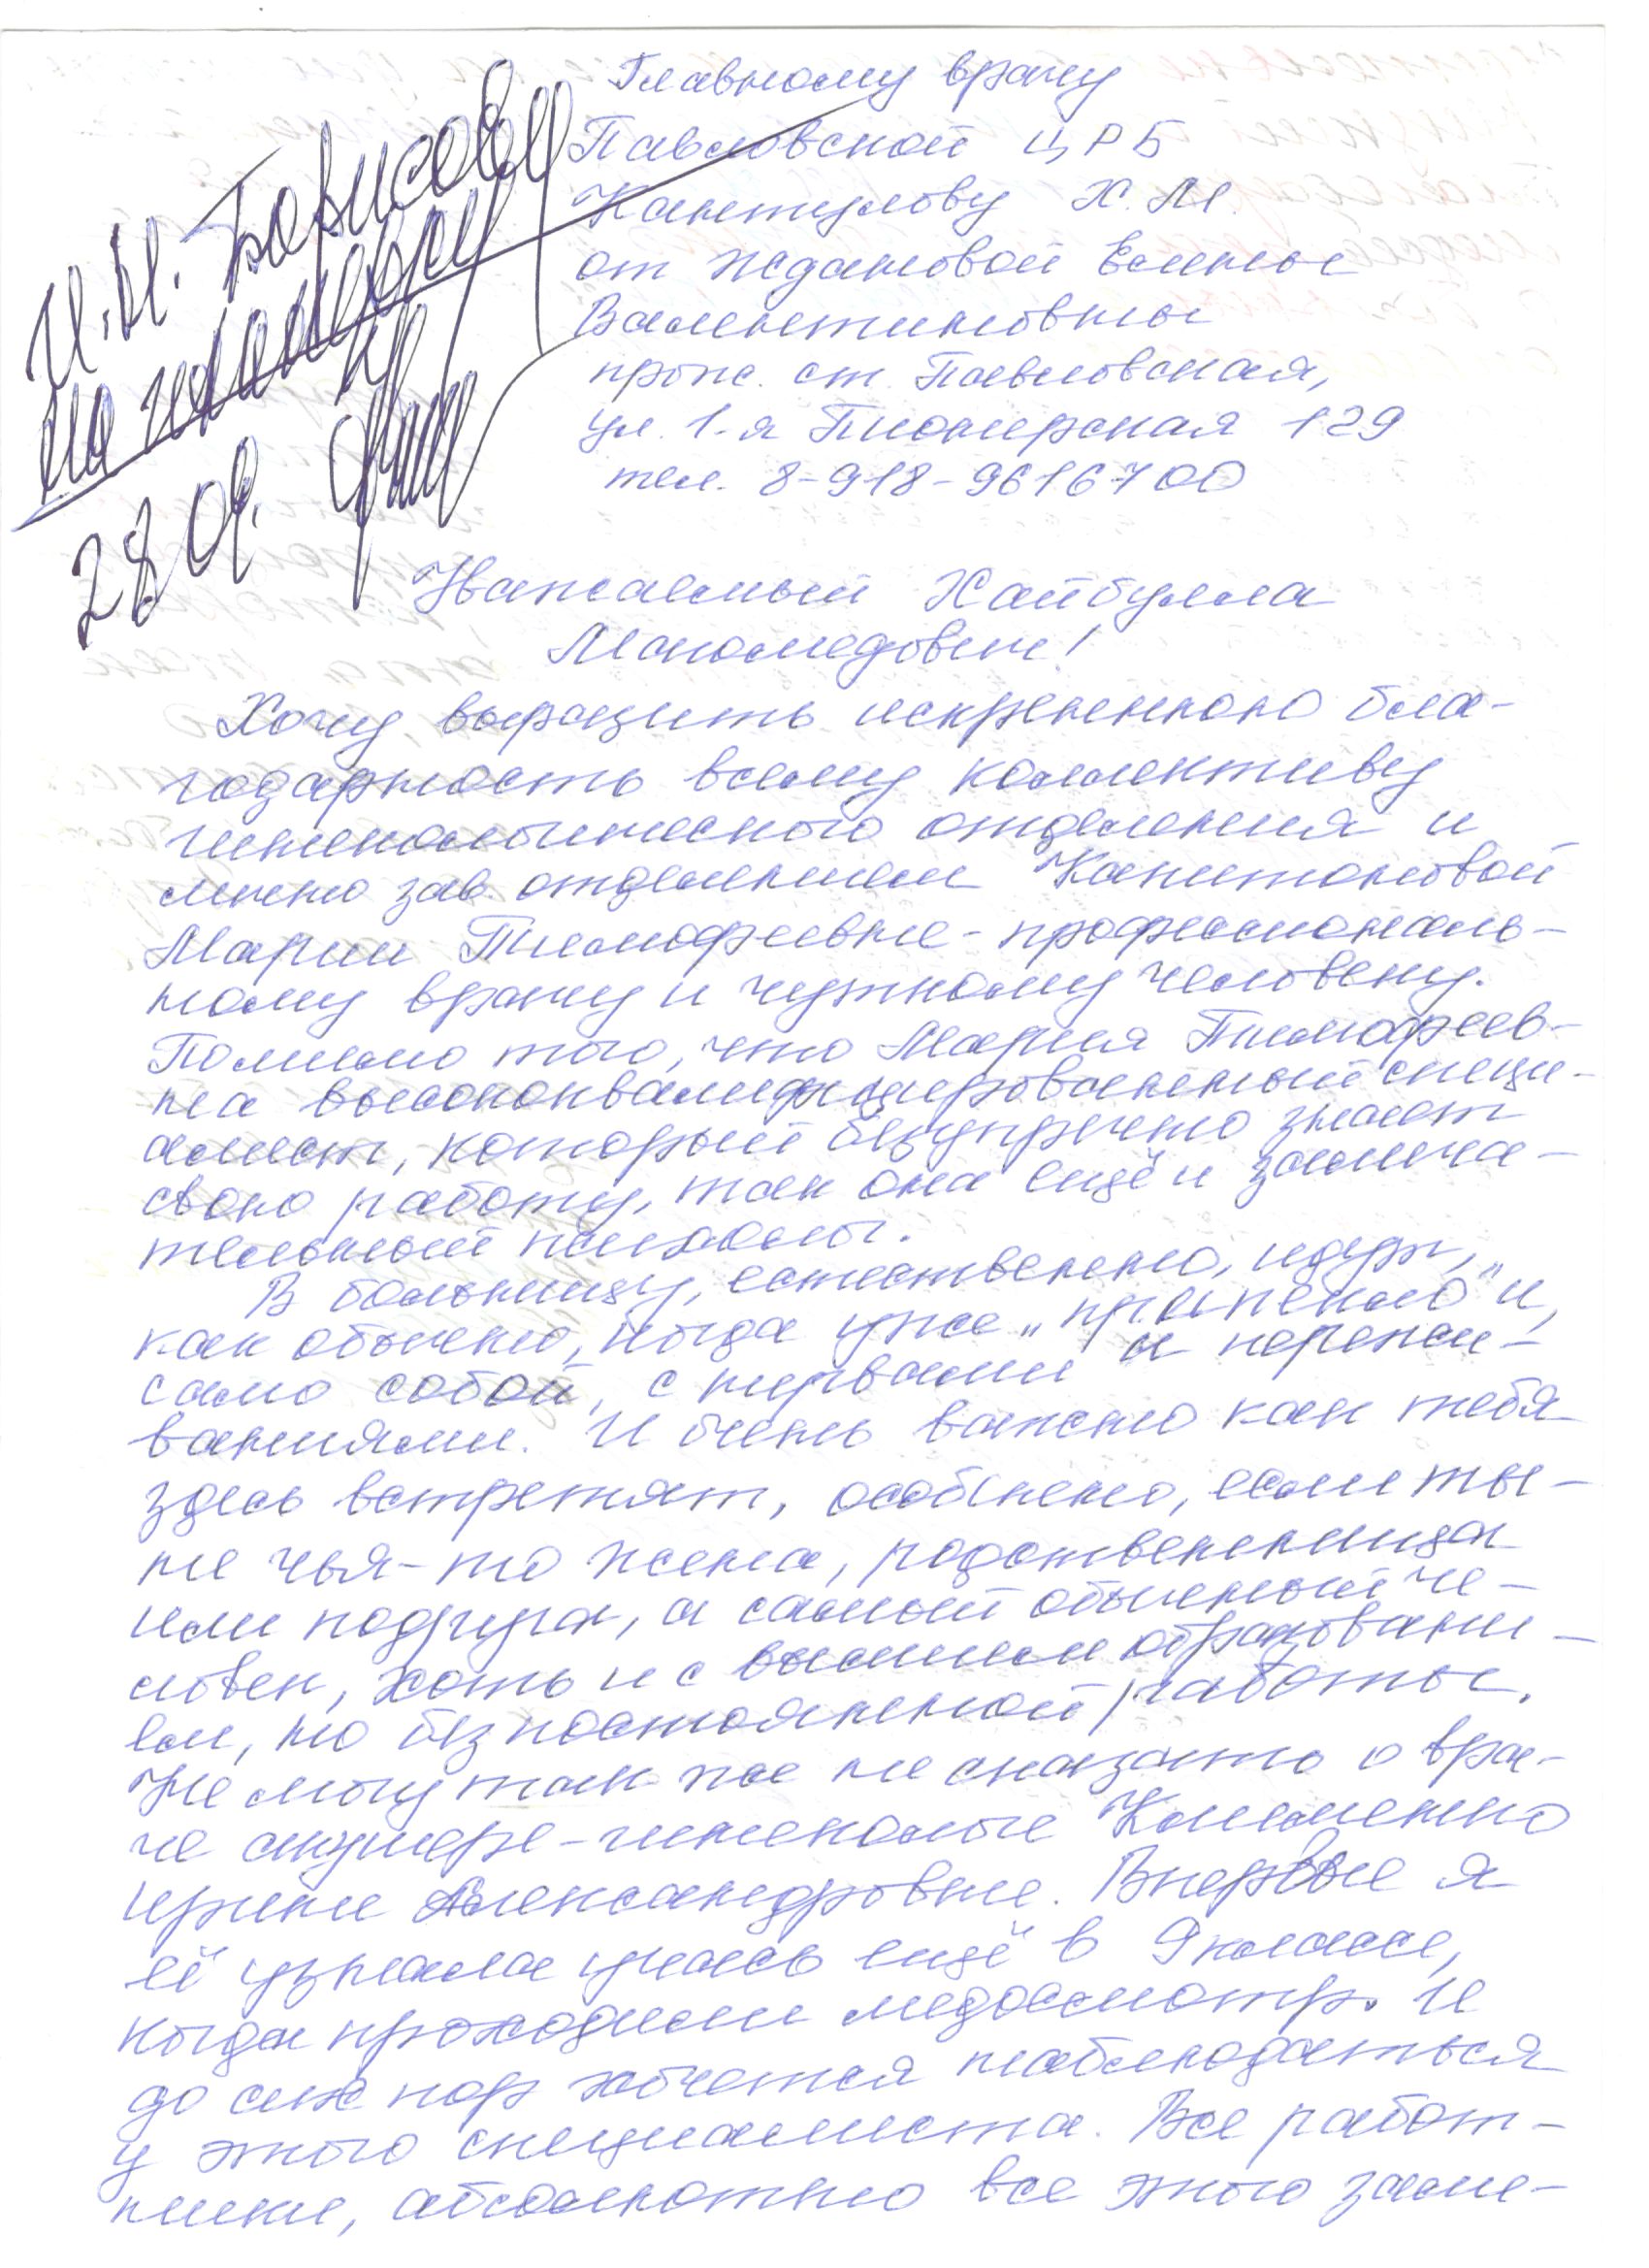 И.И. Борисовой
на планерку
28.01.
Главному врачу
Павловской ЦРБ
Кантулову Х.М.
от Ждановой Елены
Валентиновны
прож. ст. Павловская,
ул. 1-я Пионерская 129
тел. 8-918-9616700
Уважаемый Хайбулла
Магомедович!
Хочу выразить искреннюю бла-
годарность всему коллективу
гинекологического отделения и
лично зав. отделением Капитоновой
Марии Тимофеевне - профессиональ-
ному врачу и чуткому человеку.
Помимо того, что Мария Тимофеев-
на высококвалифицированный специ-
алист, который безупречно знает
свою работу, так она ещё и замеча-
тельный психолог.
В больницу, естественно, идут,
как обычно, когда уже „припекло" и,
само собой, с нервами и пережи-
ваниями. И очень важно как тебя
здесь встретят, особенно, если ты-
не чья-то жена, родственница
или подруга, а самый обычный че-
ловек, хоть и с высшим образовани-
ем, но без постоянной работы.
Не могу так же не сказать о вра-
че акушере-гинекологе Клименко
Ирине Александровне. Впервые я
её узнала учась ещё в 9 классе,
когда проходили медосмотр. И
до сих пор хочется наблюдаться
у этого специалиста. Все работ-
ники, абсолютно все этого заме-